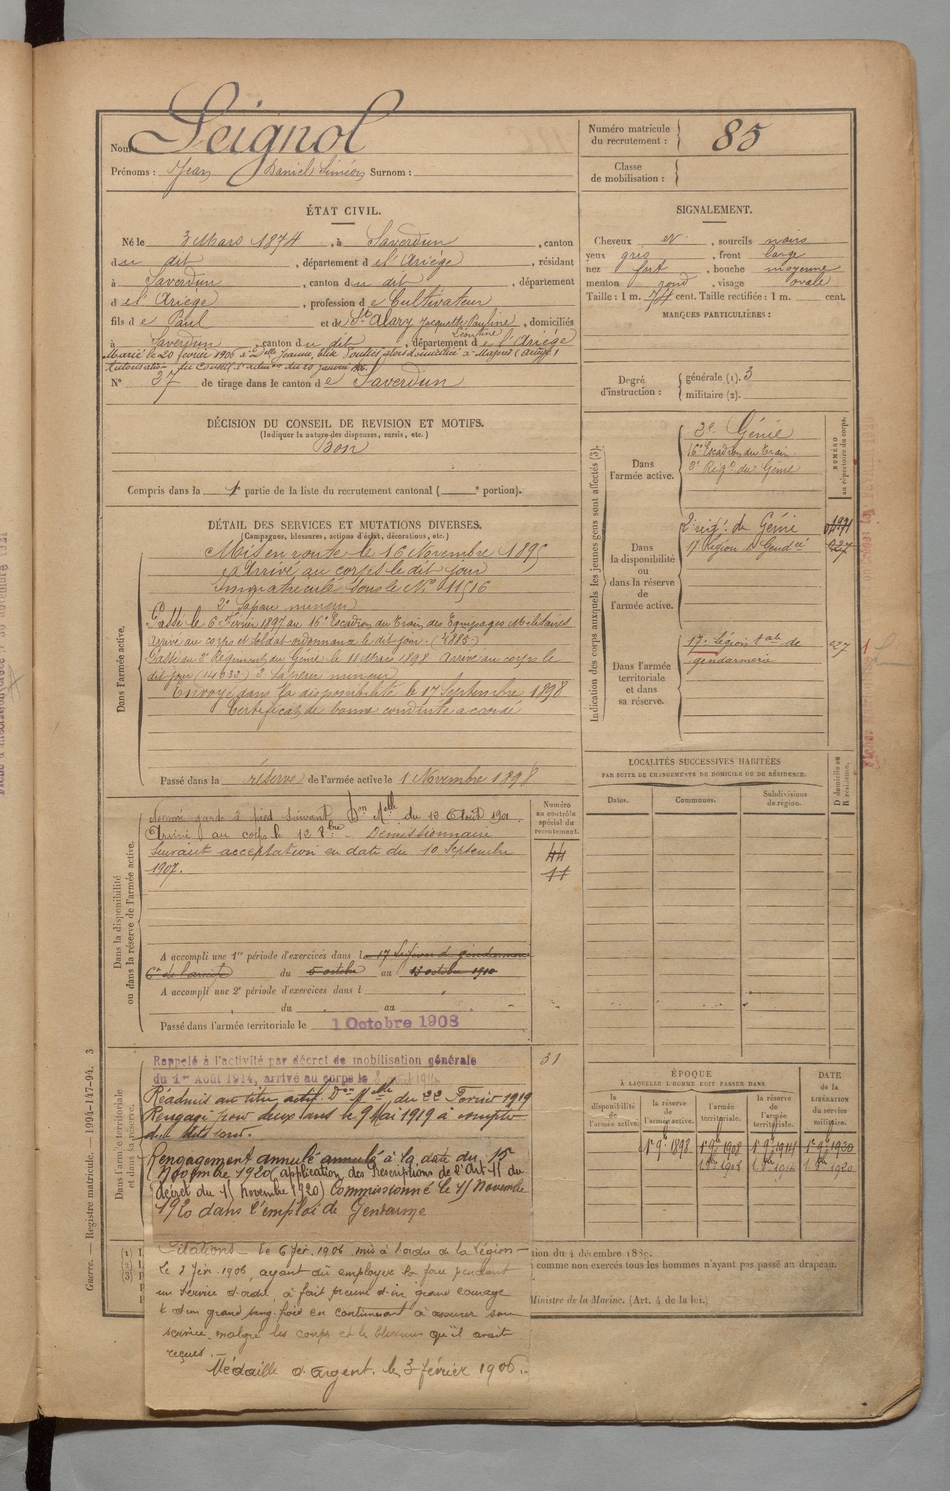 Nom: Seignol
Prénoms: Jean Daniel Siméon Surnom:
Numéro matricule du recrutement: 85
Classe de mobilisation:
ÉTAT CIVIL.
Né le 3 Mars 1874, à Saverdun, canton
du dit, département de l'Ariège, résidant
à Saverdun, canton du dit, département
de l'Ariège, profession de Cultivateur
fils de Paul et de Alary Jacquette Pauline Léontine, domiciliés
à Saverdun, canton du dit, département de l'Ariège
Marié le 20 février 1906 à
Autorisation du Conseil d'
N° 37 de tirage dans le canton de Saverdun
SIGNALEMENT.
Cheveux et, sourcils noirs
yeux gris, front large
nez fort, bouche moyenne
menton rond, visage ovale
Taille: 1 m. 74 cent. Taille rectifiée: 1 m. cent.
MARQUES PARTICULIÈRES:
Degré d'instruction: générale (1). 3
militaire (2).
DÉCISION DU CONSEIL DE REVISION ET MOTIFS.
(Indiquer la nature des dispenses, sursis, etc.)
Bon
Compris dans la 1e partie de la liste du recrutement cantonal ( e portion).
Indication des corps auxquels les jeunes gens sont affectés (3).
NUMÉRO au répertoire du corps.
Dans l'armée active.
3e Génie
16e Escadron du Train
3e Régt du Génie
Dans la disponibilité ou dans la réserve de l'armée active.
2e régt de Génie
17 Légion de Gendie
Dans l'armée territoriale et dans sa réserve.
17e Légion tale de
gendarmerie
DÉTAIL DES SERVICES ET MUTATIONS DIVERSES.
(Campagnes, blessures, actions d'éclat, décorations, etc.)
Dans l'armée active.
Mis en route le 16 Novembre 1895
Arrivé au corps le dit jour
Immatriculé sous le N° 11516
2e Sapeur mineur
Passé le 6 Février 1897 au 16e Escadron du Train des Équipages Militaires
Arrivé au corps et soldat ordonnance le dit jour (4885)
Passé au 3e Régiment du Génie le 11 Mars 1898. Arrivé au corps le
dit jour (14633) 2e Sapeur mineur
Envoyé dans la disponibilité le 17 Septembre 1898
Certificat de bonne conduite accordé
Passé dans la réserve de l'armée active le 1 Novembre 1898
LOCALITÉS SUCCESSIVES HABITÉES
PAR SUITE DE CHANGEMENTS DE DOMICILE OU DE RÉSIDENCE.
Dates. Communes. Subdivisions de région. D domicile ou R résidence.
Dans la disponibilité ou dans la réserve de l'armée active.
Numéro au contrôle spécial du recrutement.
Nommé garde à pied suivant Don Mlle du 13 Août 1901
Arrivé au corps le 12 8bre. Démissionnaire
suivant acceptation en date du 10 Septembre
1907.
44
11
A accompli une 1re période d'exercices dans l 17 Légion de gendarmerie
du 5 octobre au 13 octobre 1910
A accompli une 2e période d'exercices dans l
du au
Passé dans l'armée territoriale le 1 Octobre 1908
Dans l'armée territoriale et dans sa réserve.
31
Rappelé à l'activité par décret de mobilisation générale
du 1er Août 1914, arrivé au corps le
Réadmis au titre actif. Don Mlle du 22 Février 1919
Rengagé pour deux ans le 9 Mai 1919 à compter
du dit jour.
Rengagement annulé annulé à la date du 15
Novembre 1920 (application des Prescriptions de l'art 11 du
décret du 11 novembre 1920) Commissionné le 15 Novembre
1920 dans l'emploi de Gendarme
Citations - le 6 fév. 1906 mis à l'ordre de la légion -
le 2 fév. 1906, ayant dû employer la force pendant
un service d'ordre, a fait preuve d'un grand courage
et d'un grand sang-froid en continuant à assurer son
service malgré les coups et les blessures qu'il avait
reçues.
Médaille d'argent le 3 février 1906.
ÉPOQUE
À LAQUELLE L'HOMME DOIT PASSER DANS
la disponibilité de l'armée active. la réserve de l'armée active. l'armée territoriale. la réserve de l'armée territoriale.
DATE de la LIBÉRATION du service militaire.
1er 9e 1898 1er 9e 1908 1er 9e 1914 1er 9e 1920
tion du 4 décembre 1889.
comme non exercés tous les hommes n'ayant pas passé au drapeau.
Ministre de la Marine. (Art. 4 de la loi.)
Guerre. — Registre matricule. — 1994-147-94. 3